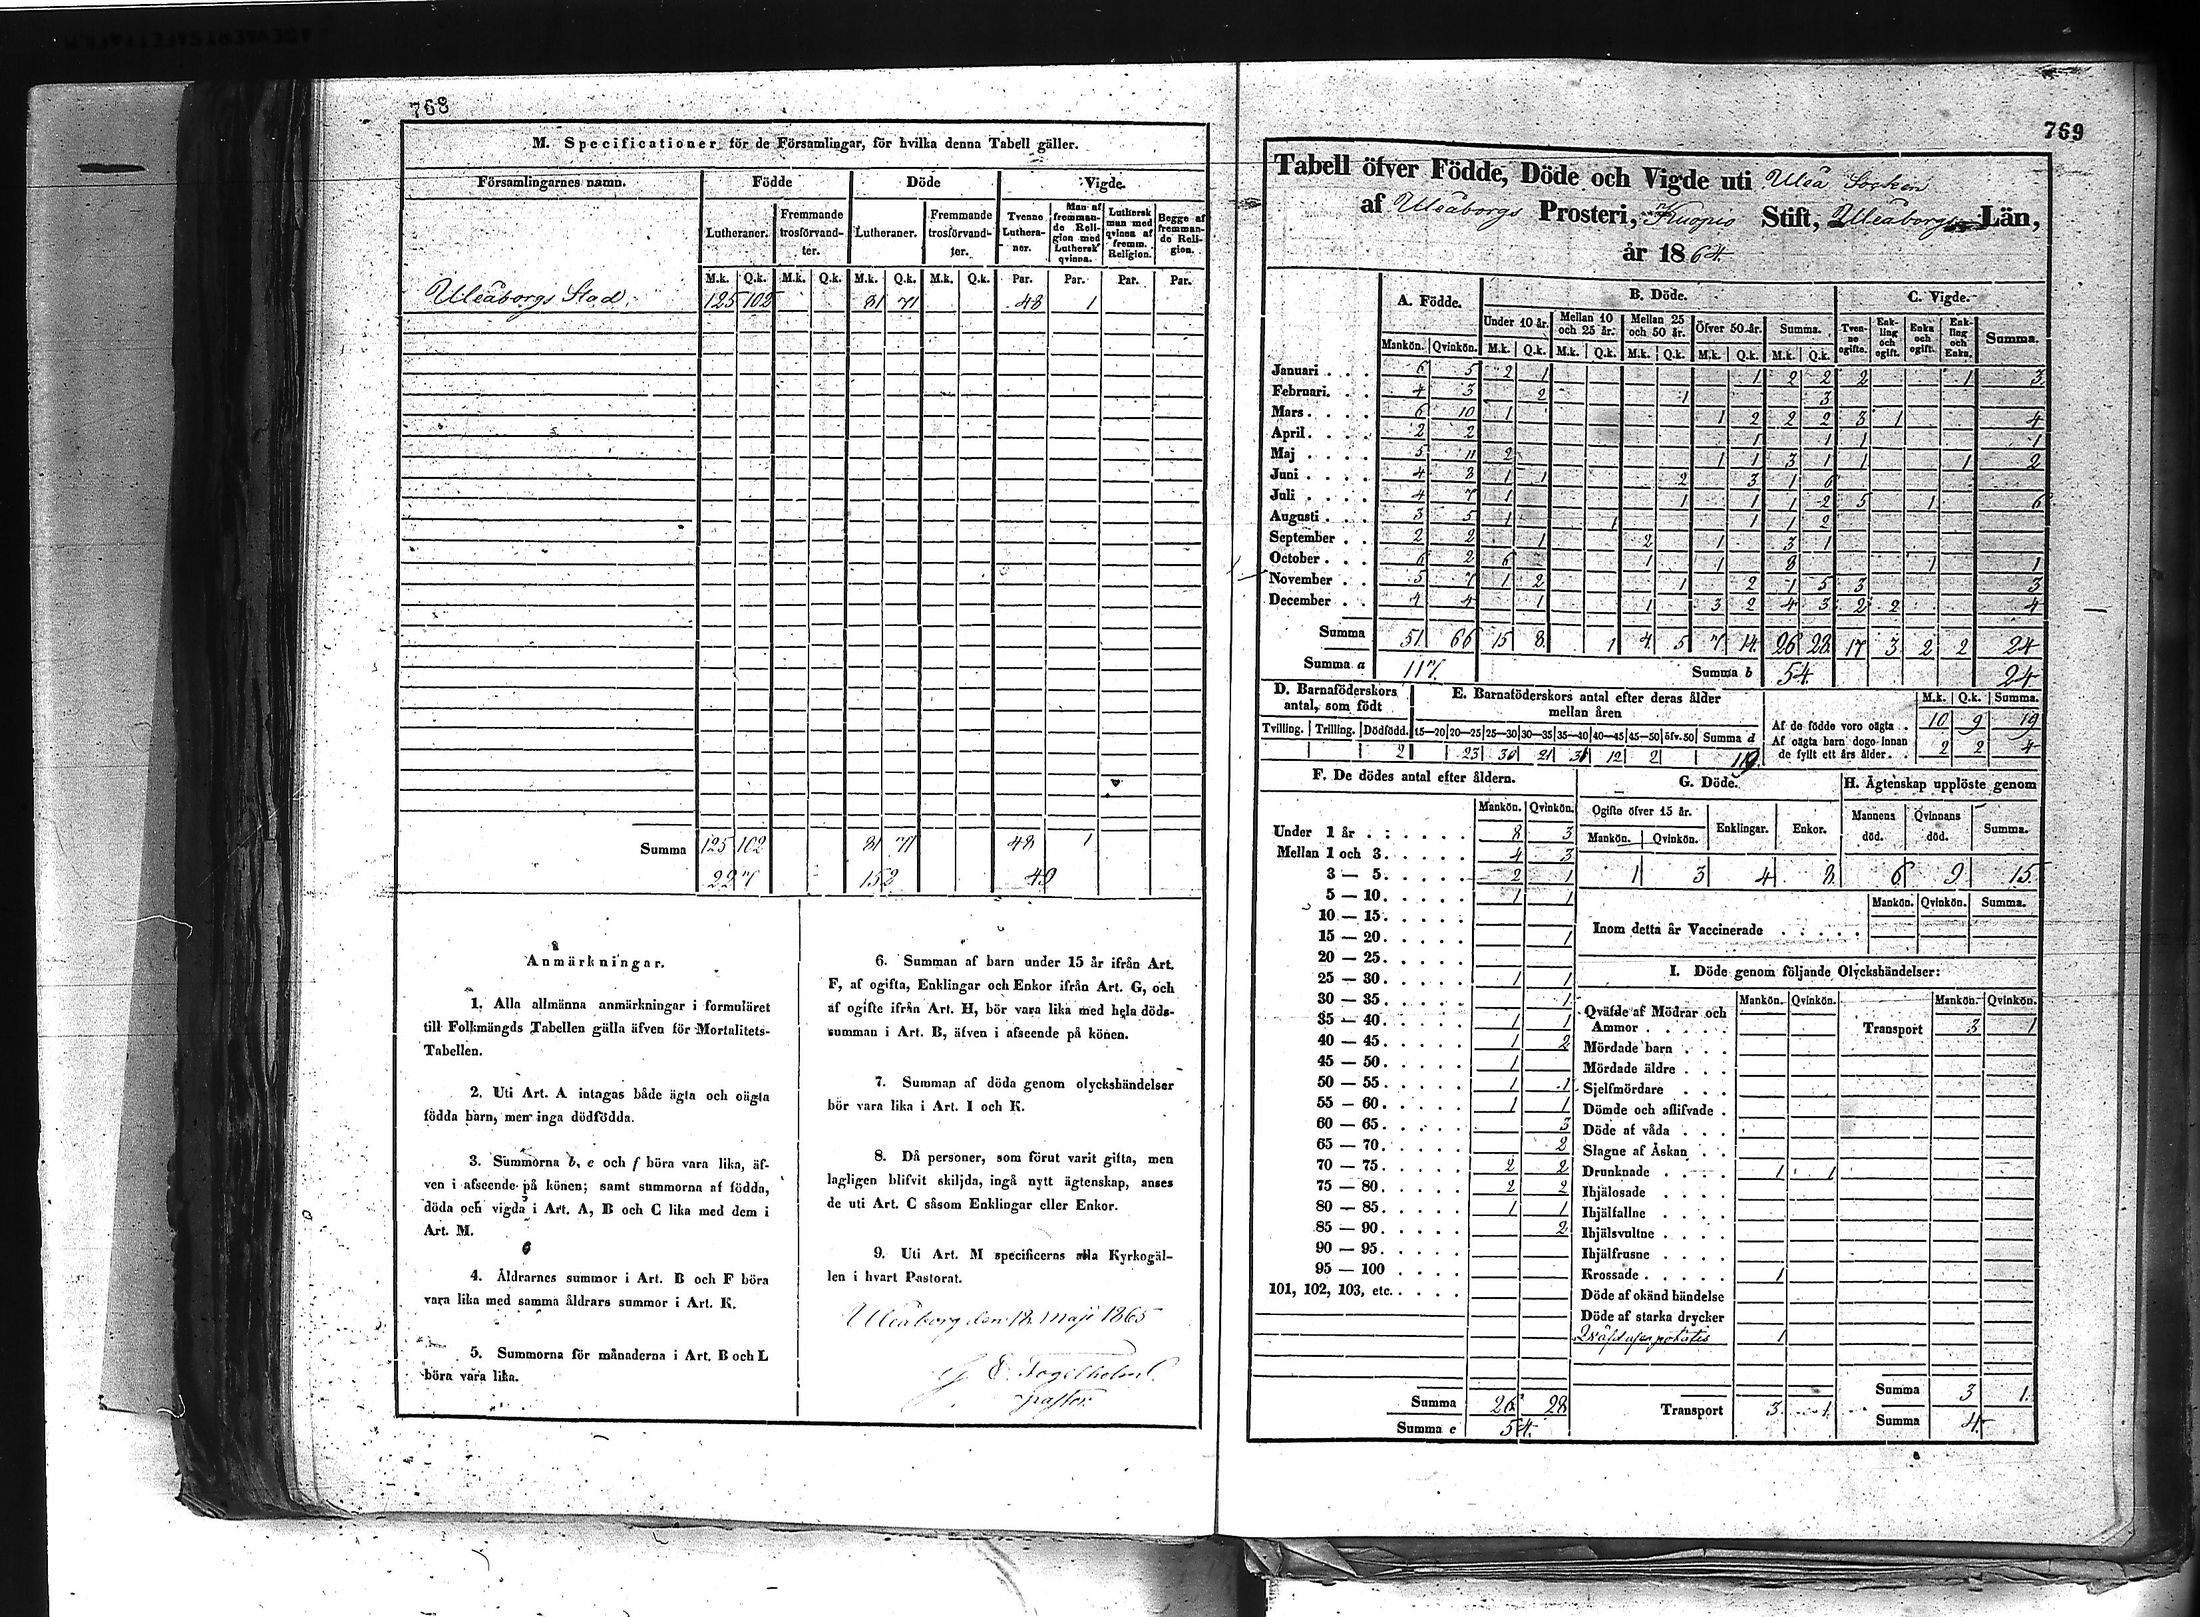 768
M. Specificationer för de Församlingar, för hvilka denna Tabell gäller.
Församlingarnes namn. Födde Döde Vigde.
Lutheraner. Fremmande trosförvandter. Lutheraner. Fremmande trosförvandter. Tvenne Lutheraner. Man af fremmande Religion med Luthersk qvinna. Luthersk man med qvinna af fremm. Religion. Begge af fremmande Religion.
M.k. Q.k. M.k. Q.k. M.k. Q.k. M.k. Q.k. Par. Par. Par. Par.
Uleåborgs Stad. 125 102 81 71 48 1
Summa 125 102 81 71 48 1
227 152 49
Anmärkningar.
1. Alla allmänna anmärkningar i formuläret
till Folkmängds Tabellen gälla äfven för Mortalitets-
Tabellen.
2. Uti Art. A intagas både ägta och oägta
födda barn, men inga dödfödda.
3. Summorna b, e och f böra vara lika, äf-
ven i afseende på könen; samt summorna af födda,
döda och vigda i Art. A, B och C lika med dem i
Art. M.
4. Åldrarnes summor i Art. B och F böra
vara lika med samma åldrars summor i Art. K.
5. Summorna för månaderna i Art. B och L
böra vara lika.
6. Summan af barn under 15 år ifrån Art.
F, af ogifta, Enklingar och Enkor ifrån Art. G, och
af ogifte ifrån Art. H, bör vara lika med hela döds-
summan i Art. B, äfven i afseende på könen.
7. Summan af döda genom olyckshändelser
bör vara lika i Art. I och K.
8. Då personer, som förut varit gifta, men
lagligen blifvit skiljda, ingå nytt ägtenskap, anses
de uti Art. C såsom Enklingar eller Enkor.
9. Uti Art. M specificeras alla Kyrkogäl-
len i hvart Pastorat.
Uleåborg den 18 maji 1865
E. Fogelholm
pastor
769
Tabell öfver Födde, Döde och Vigde uti Uleå Socken
af Uleåborgs Prosteri, Kuopio Stift, Uleåborgs Län,
år 1864.
A. Födde. B. Döde. C. Vigde.
Under 10 år. Mellan 10 och 25 år. Mellan 25 och 50 år. Öfver 50 år. Summa. Tvenne ogifte. Enkling och ogift. Enka och ogift. Enkling och Enka. Summa.
Mankön. Qvinkön. M.k. Q.k. M.k. Q.k. M.k. Q.k. M.k. Q.k. M.k. Q.k.
Januari 6 5 2 1 1 2 2 2 1 3
Februari 4 3 2 1 3
Mars 6 10 1 1 2 2 2 3 1 4
April 2 2 1 1 1 1
Maj 5 11 2 1 1 3 1 1 1 2
Juni 4 8 1 1 2 3 1 6
Juli 4 7 1 1 1 1 2 5 1 6
Augusti 3 5 1 1 1 1 2
September 2 2 1 2 1 3 1
October 6 2 6 1 1 8 1 1
November 5 7 1 2 1 2 1 5 3 3
December 4 4 1 1 3 2 4 3 2 2 4
Summa 51 66 15 8 1 4 5 7 14 26 28 17 3 2 2 24
Summa a 117. Summa b 54. 24
D. Barnaföderskors antal, som födt
E. Barnaföderskors antal efter deras ålder mellan åren
M.k. Q.k. Summa.
Tvilling. Trilling. Dödfödd. 15—20 20—25 25—30 30—35 35—40 40—45 45—50 öfv. 50 Summa d
2 23 30 21 31 12 2 119
Af de födde voro oägta 10 9 19
Af oägta barn dogo innan de fyllt ett års ålder 2 2 4
F. De dödes antal efter åldern.
Mankön. Qvinkön.
Under 1 år 8 3
Mellan 1 och 3 4 3
3 — 5 2 1
5 — 10 1 1
10 — 15
15 — 20 1
20 — 25
25 — 30 1 1
30 — 35 1
35 — 40 1 1
40 — 45 1 2
45 — 50 1
50 — 55 1 1
55 — 60 1 1
60 — 65 3
65 — 70 2
70 — 75 2 2
75 — 80 2 2
80 — 85 1 1
85 — 90 2
90 — 95
95 — 100
101, 102, 103, etc.
Summa 26 28
Summa e 54.
G. Döde.
Ogifte öfver 15 år. Enklingar. Enkor.
Mankön. Qvinkön.
1 3 4 8
H. Ägtenskap upplöste genom
Mannens död. Qvinnans död. Summa.
6 9 15
Mankön. Qvinkön. Summa.
Inom detta år Vaccinerade
I. Döde genom följande Olyckshändelser:
Mankön. Qvinkön. Mankön. Qvinkön.
Qväfde af Mödrar och Ammor Transport 3 1
Mördade barn
Mördade äldre
Sjelfmördare
Dömde och aflifvade
Döde af våda
Slagne af Åskan
Drunknade 1 1
Ihjälosade
Ihjälfallne
Ihjälsvultne
Ihjälfrusne
Krossade 1
Döde af okänd händelse
Döde af starka drycker
1
Transport 3 1
Summa 3 1
Summa 4.